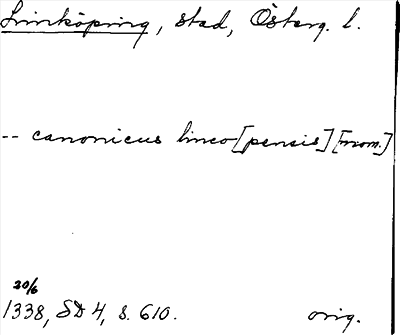 Linköping, stad, Österg. l.
-- canonicus linco[pensis] [nom.]
20/6
1338, SD 4, s. 610. orig.